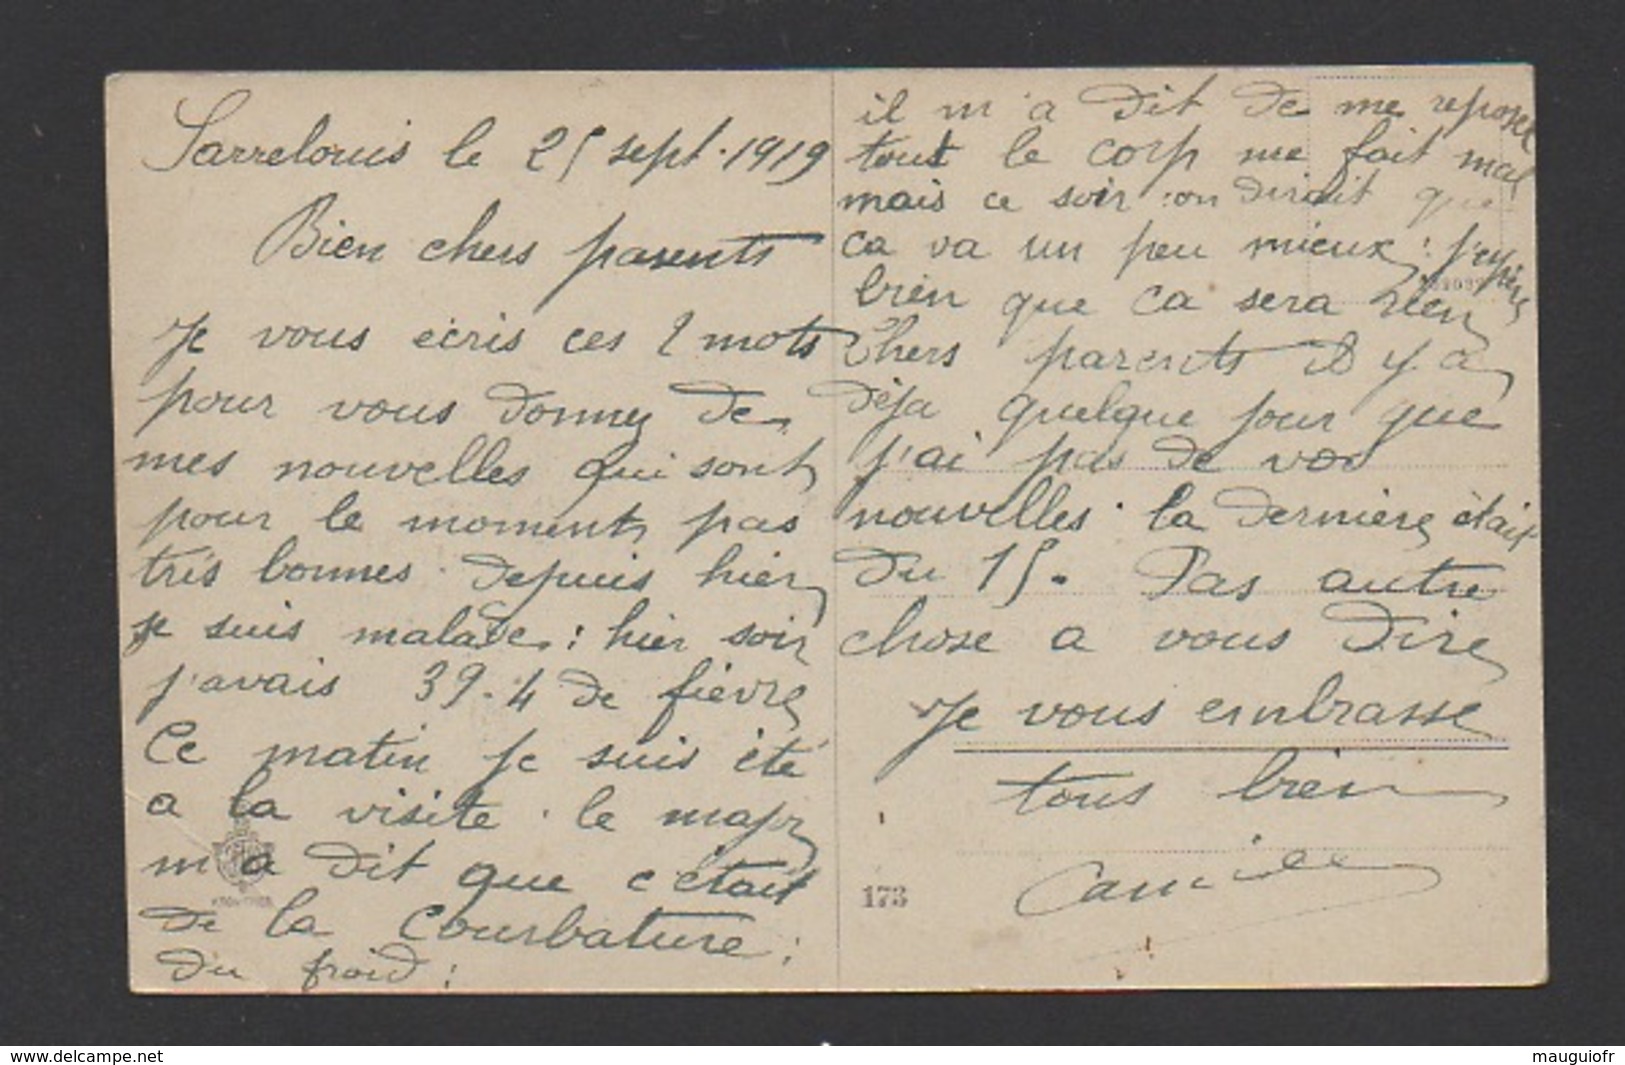 Sarrelouis le 25 sept. 1919
Bien chers parents
Je vous écris ces 2 mots
pour vous donnez de
mes nouvelles qui sont
pour le moment pas
très bonnes. depuis hier
je suis malade : hier soir
j'avais 39.4 de fièvre
Ce matin je suis été
a la visite. le major
m'a dit que c'était
de la Courbature ;
du froid ;
il m'a dit de me reposer
tout le corp me fait mal
mais ce soir on dirait que
ca va un peu mieux : j'espère
bien que ca sera rien
Chers parents il y a
déja quelque jour que
j'ai pas de vos
nouvelles. la dernière était
du 15. Pas autre
chose a vous dire
Je vous embrasse
tous bien
Camille
173
www.delcampe.net
mauguiofr